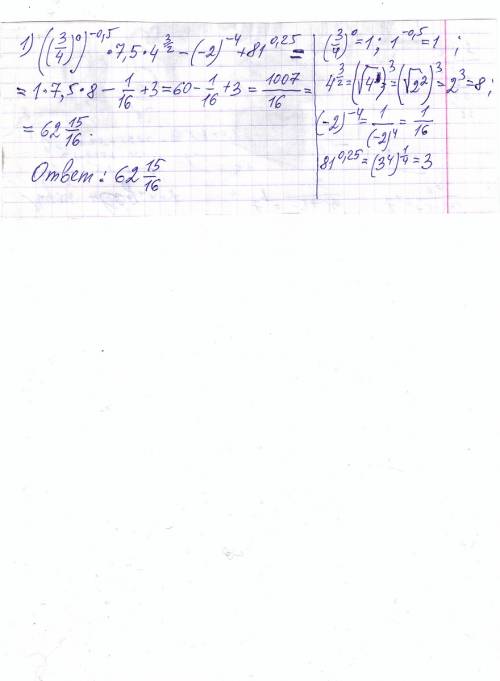 1) ((3/4)^0)^-0,5 · 7,5 · 4^(3/2) − (−2)^-4 + 81^0,25 =
= 1 · 7,5 · 8 − 1/16 + 3 = 60 − 1/16 + 3 = 1007/16 =
= 62 15/16.
Ответ: 62 15/16
(3/4)^0 = 1; 1^-0,5 = 1 ;
4^(3/2) = (√4)^3 = (√2^2)^3 = 2^3 = 8;
(−2)^-4 = 1/(−2)^4 = 1/16
81^0,25 = (3^4)^(1/4) = 3